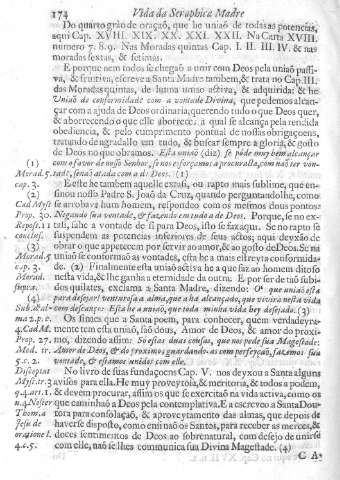 174 Vida da Seraphica Madre
Do quarto gráo de oraçaõ, que he uniaõ de todas as potencias,
aqui Cap. XVIII. XIX. XX. XXI. XXII. Na Carta XVIII.
numero 7. 8. 9. Nas Moradas quintas Cap. I. II. III. IV. & nas
moradas sextas, & setimas.
E porque nem todos se chegaõ a unir com Deos pela uniaõ passi-
va, & fruitiva, escreve a Santa Madre tambem, & trata no Cap. III.
das Moradas quintas, de huma uniaõ activa, & adquirida: & he
Uniaõ de conformidade com a vontade Divina, que podemos alcan-
çar com a ajuda de Deos ordinaria, querendo tudo o que Deos quer,
& aborrecendo o que elle aborrece: a qual se alcança pela rendida
obediencia, & pelo cumprimento pontual de nossas obrigaçoens,
tratando de agradallo em tudo, & buscar sempre a gloria, & gosto
de Deos no que obramos. Esta uniaõ (diz) se póde muy bem alcançar
(1) com a favor de nosso Senhor, se nos esforçamos a procuralla, com naõ ter von-
Morad. 5. tade, senaõ atada com a de Deos. (1)
cap. 3. E este he tambem aquelle extasi, ou rapto mais sublime, que en-
(2) sinou nosso Padre S. Joaõ da Cruz, quando perguntandolhe, como
Cad Myst se arrobava hum homem, respondeo com os mesmos dous pontos:
Prop. 30. Negando sua vontade, & fazendo em tudo a de Deos. Porque, se no ex-
Repost. 11 tasi, sahe a vontade de si para Deos, isto se faz aqui. Se no rapto se
conclus. suspendem as potencias inferiores de seus actos; aqui deixaõ de
(3) obrar o que appetecem por servir ao amor, & ao gosto de Deos. Se na
Morad. 5 uniaõ se conformaõ as vontades, esta he a mais estreyta conformida-
cap. 3. de. (2) Finalmente esta uniaõ activa he a que faz ao homem ditoso
Morad. nesta vida, & lhe ganha a eternidade da outra. E por ser de taõ subi-
supra. dos quilates, exclama a Santa Madre, dizendo: O' que uniaõ esta
(4) para desejar! venturosa a alma, que a ha alcançado, que vivirá nesta vida
Sub. & al- com descanço. Esta he a uniaõ, que toda minha vida hey desejado. (3)
ma 2. p. c. Os fines que a Santa poem, para conhecer, quem verdadeyra-
4. Cad. M. mente tem esta uniaõ, saõ dous, Amor de Deos, & amor do proxi-
Prop. 27. mo, dizendo assim: Só estas duas cousas, que nos pede sua Magestade:
Med. tr. Amor de Deos, & do proximo; guardando-as com perfeyçaõ, fazemos sua
5. c. 2. vontade, & estamos unidas com elle.
Disceptat No livro de suas fundaçoens Cap. V. nos deyxou a Santa alguns
Myst. tr. 3 avisos para ella. He muy proveytosa, & meritoria, & todos a podem,
q 4. art. 1. & devem procurar, assim os que se exercitaõ na vida activa, como os
n. 4. Noster que caminhaõ a Deos pela contemplativa. E a escreveo a Santa Dou-
Thom. a tora para consolaçaõ, & aproveytamento das almas, que depois de
Jesu de haverse disposto, como ensinaõ os Santos, para receber as mercés, &
oratione l. doces sentimentos de Deos ao sobrenatural, com desejo de unirse
4. c. 5. com elle, naõ se lhes communica sua Divina Magestade. (4)
C A-